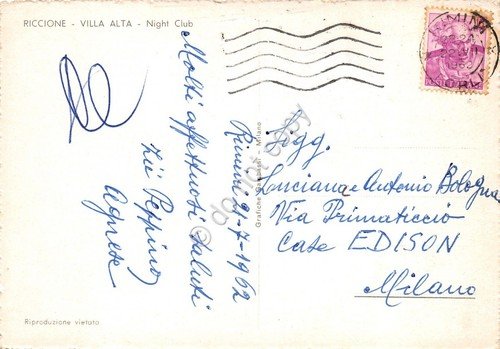 RICCIONE - VILLA ALTA - Night Club
Molti affettuosi saluti
Rimini 9-7-1962
zii Peppino
Agnese
Sigg.
Luciana e Antonio Bologna
Via Primaticcio
Case EDISON
Milano
Riproduzione vietata